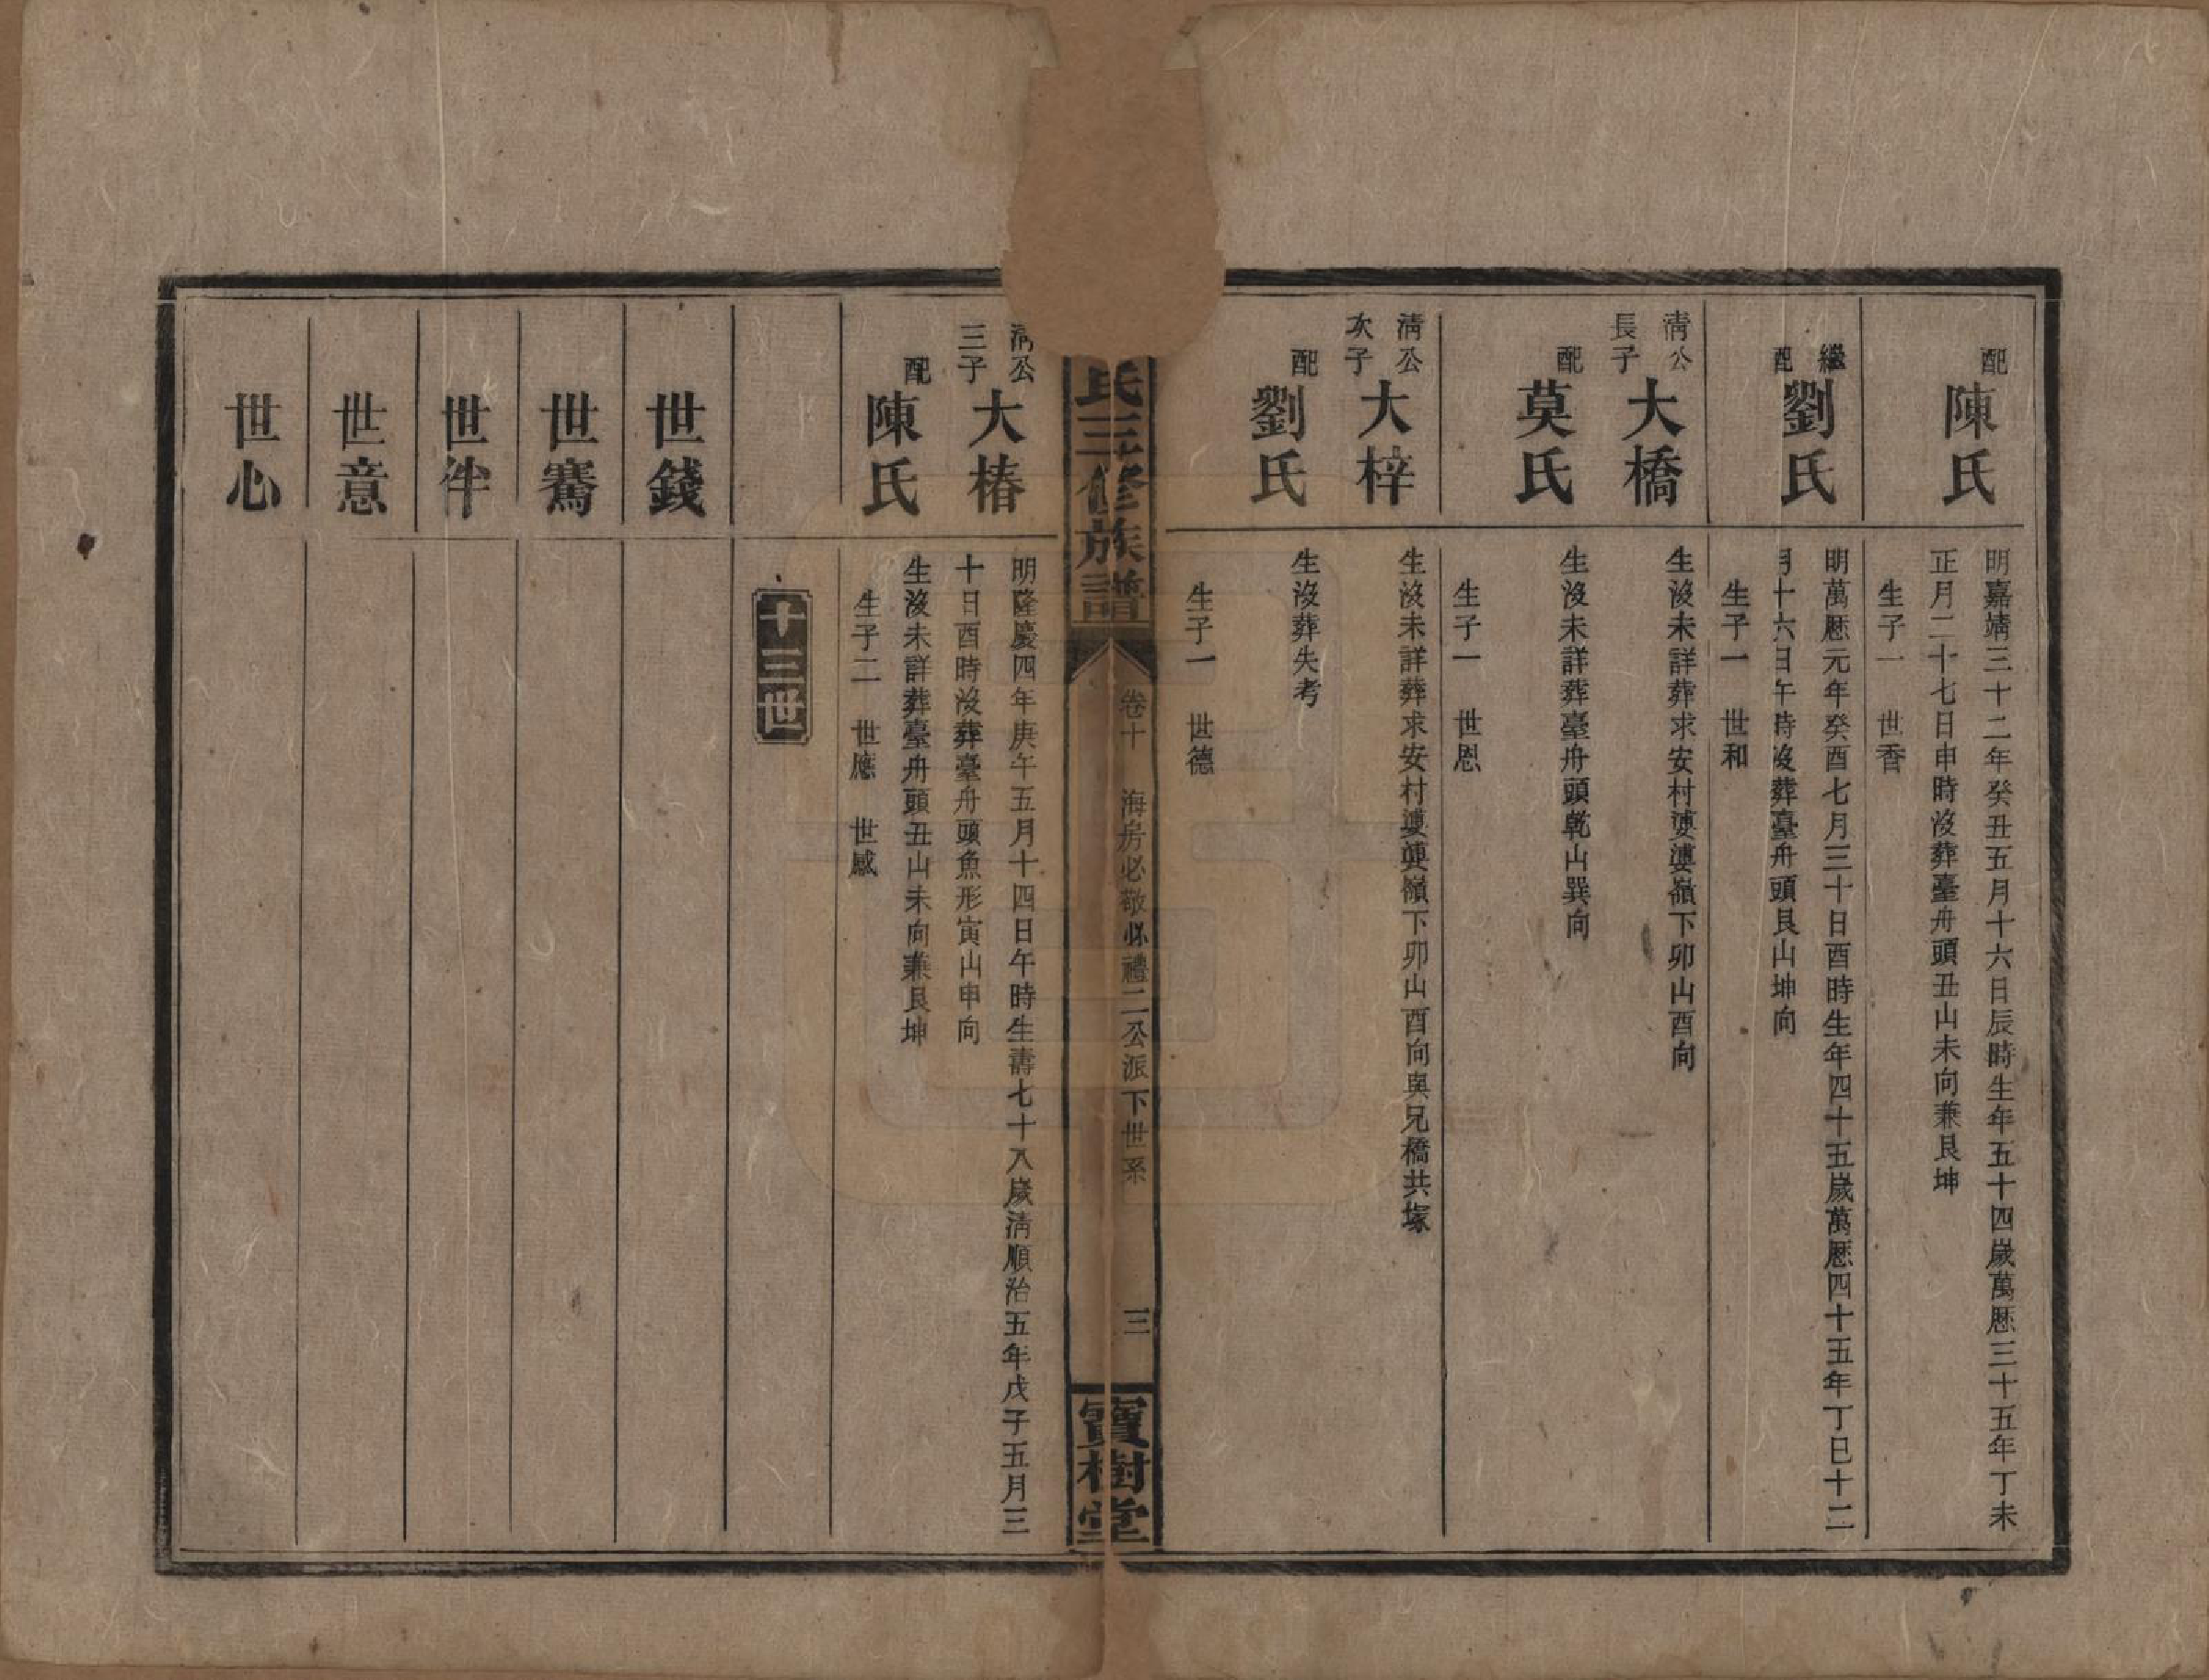 配陳氏
明嘉靖三十二年癸丑五月十六日辰時生年五十四歲萬厯三十五年丁未
正月二十七日申時沒葬臺舟頭丑山未向兼艮坤
生子一　世香
繼配劉氏
明萬厯元年癸酉七月三十日酉時生年四十五歲萬厯四十五年丁巳十二
月十六日午時沒葬臺舟頭艮山坤向
生子一　世和
清公長子大橋
生沒未詳葬求安村婆婆嶺下卯山酉向
配莫氏
生沒未詳葬臺舟頭乾山巽向
生子一　世恩
清公次子大梓
生沒未詳葬求安村婆婆嶺下卯山酉向與兄橋共塚
配劉氏
生沒葬失考
生子一　世德
氏三修族譜
卷十　海房必敬必禮二公派下世系
三
寶樹堂
清公三子大椿
明隆慶四年庚午五月十四日午時生壽七十八歲清順治五年戊子五月三
十日酉時沒葬臺舟頭魚形寅山申向
配陳氏
生沒未詳葬臺舟頭丑山未向兼艮坤
生子二　世應　世感
十三世
世錢
世騫
世伴
世意
世心